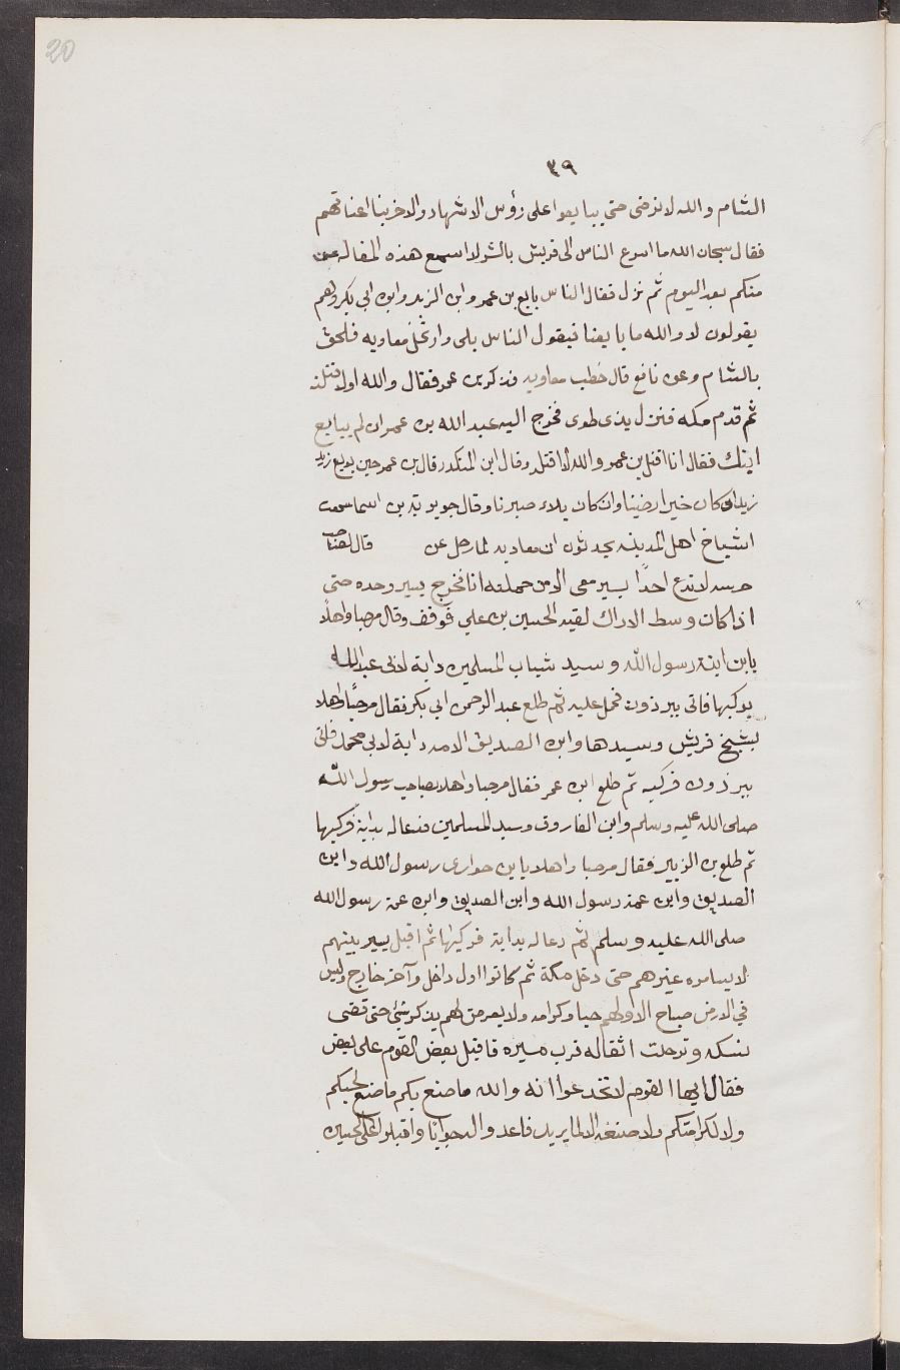 20
٣٩
الشام والله لا نرضى حتى يبايعوا على رؤس الاشهاد والا ضربنا اعناقهم
فقال سبحان الله ما اسرع الناس الى قريش بالشر لا اسمع هذه المقاله من
منكم بعد اليوم ثم نزل فقال الناس بايع بن عمر وابن الزبير وابن ابي بكر وهم
يقولون لا والله ما بايعنا فيقول الناس بلى وارتحل معاويه فلحق
بالشام وعن نافع قال خطب معاويه فذكر بن عمر فقال والله
ثم قدم مكه فنزل بذى طوى فخرج اليه عبد الله بن عمر ان لم يبايع
ابنك فقال انا اقتل بن عمر والله لا اقتله وقال ابن المنكدر قال بن عمر حين بويع يزيد
ان كان خيرا رضينا وان كان بلاء صبرنا وقال جويرية بن اسما سمعت
اشياخ اهل المدينه يحدثون ان معاويه لما رحل عن قال لصاحب
حرسه لا تدع احدًا يسير معى الا من حملته انا فخرج يسير وحده حتى
اذا كان وسط الاراك لقيه الحسين بن علي فوقف وقال مرحبا واهلا
يا بن ابنة رسول الله وسيد شباب المسلمين دابة لابى عبد الله
يركبها فاتى ببرذون فحمل عليه ثم طلع عبد الرحمن ابى بكر فقال مرحبًا واهلا
بشيخ قريش وسيدها وابن الصديق الامه دابة لابى محمد فاتى
ببرذون فركبه ثم طلع ابن عمر فقال مرحبا واهلا بصاحب رسول الله
صلى الله عليه وسلم وابن الفاروق وسيد المسلمين فدعا له بدابة فركبها
ثم طلع بن الزبير فقال مرحبا واهلا يا بن حوارى رسول الله وابن
الصديق وابن عمة رسول الله وابن الصديق وابن عمة رسول الله
صلى الله عليه وسلم ثم دعا له بدابة فركبها ثم اقبل يسير بينهم
لا يسايره غيرهم حتى دخل مكة ثم كانوا اول داخل وآخر خارج وليس
في الارض صباح الا ولهم حبا وكرامه ولا يعرض لهم بذكر شئ حتى قضى
نسكه وترحلت اثقاله قرب مسيره فاقبل بعض القوم على بعض
فقال ايها القوم لا تخدعوا انه والله ما صنع بكم ما صنع لحبكم
ولا لكرامتكم ولا صنعه الا لما يريد فاعدوا له جوابا واقبلوا على الحسين